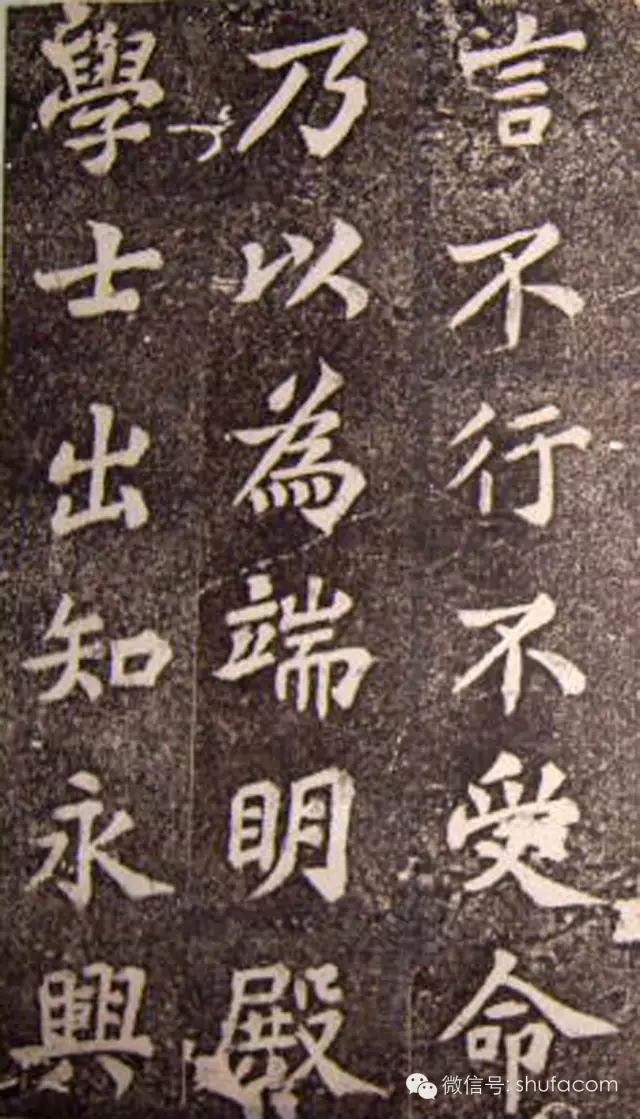 言不行不受命
乃以為端明殿
學士出知永興
微信号: shufacom